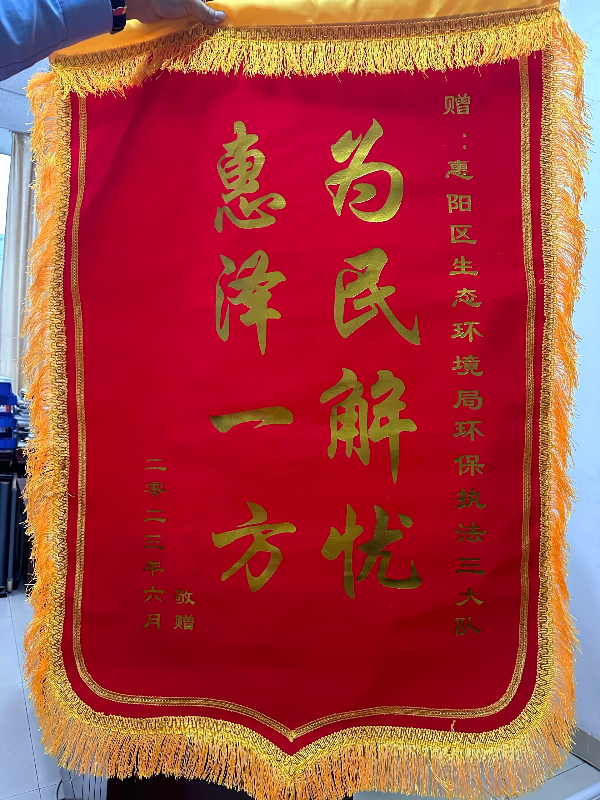 赠：惠阳区生态环境局环保执法三大队
为民解忧
惠泽一方
敬赠
二零二三年六月